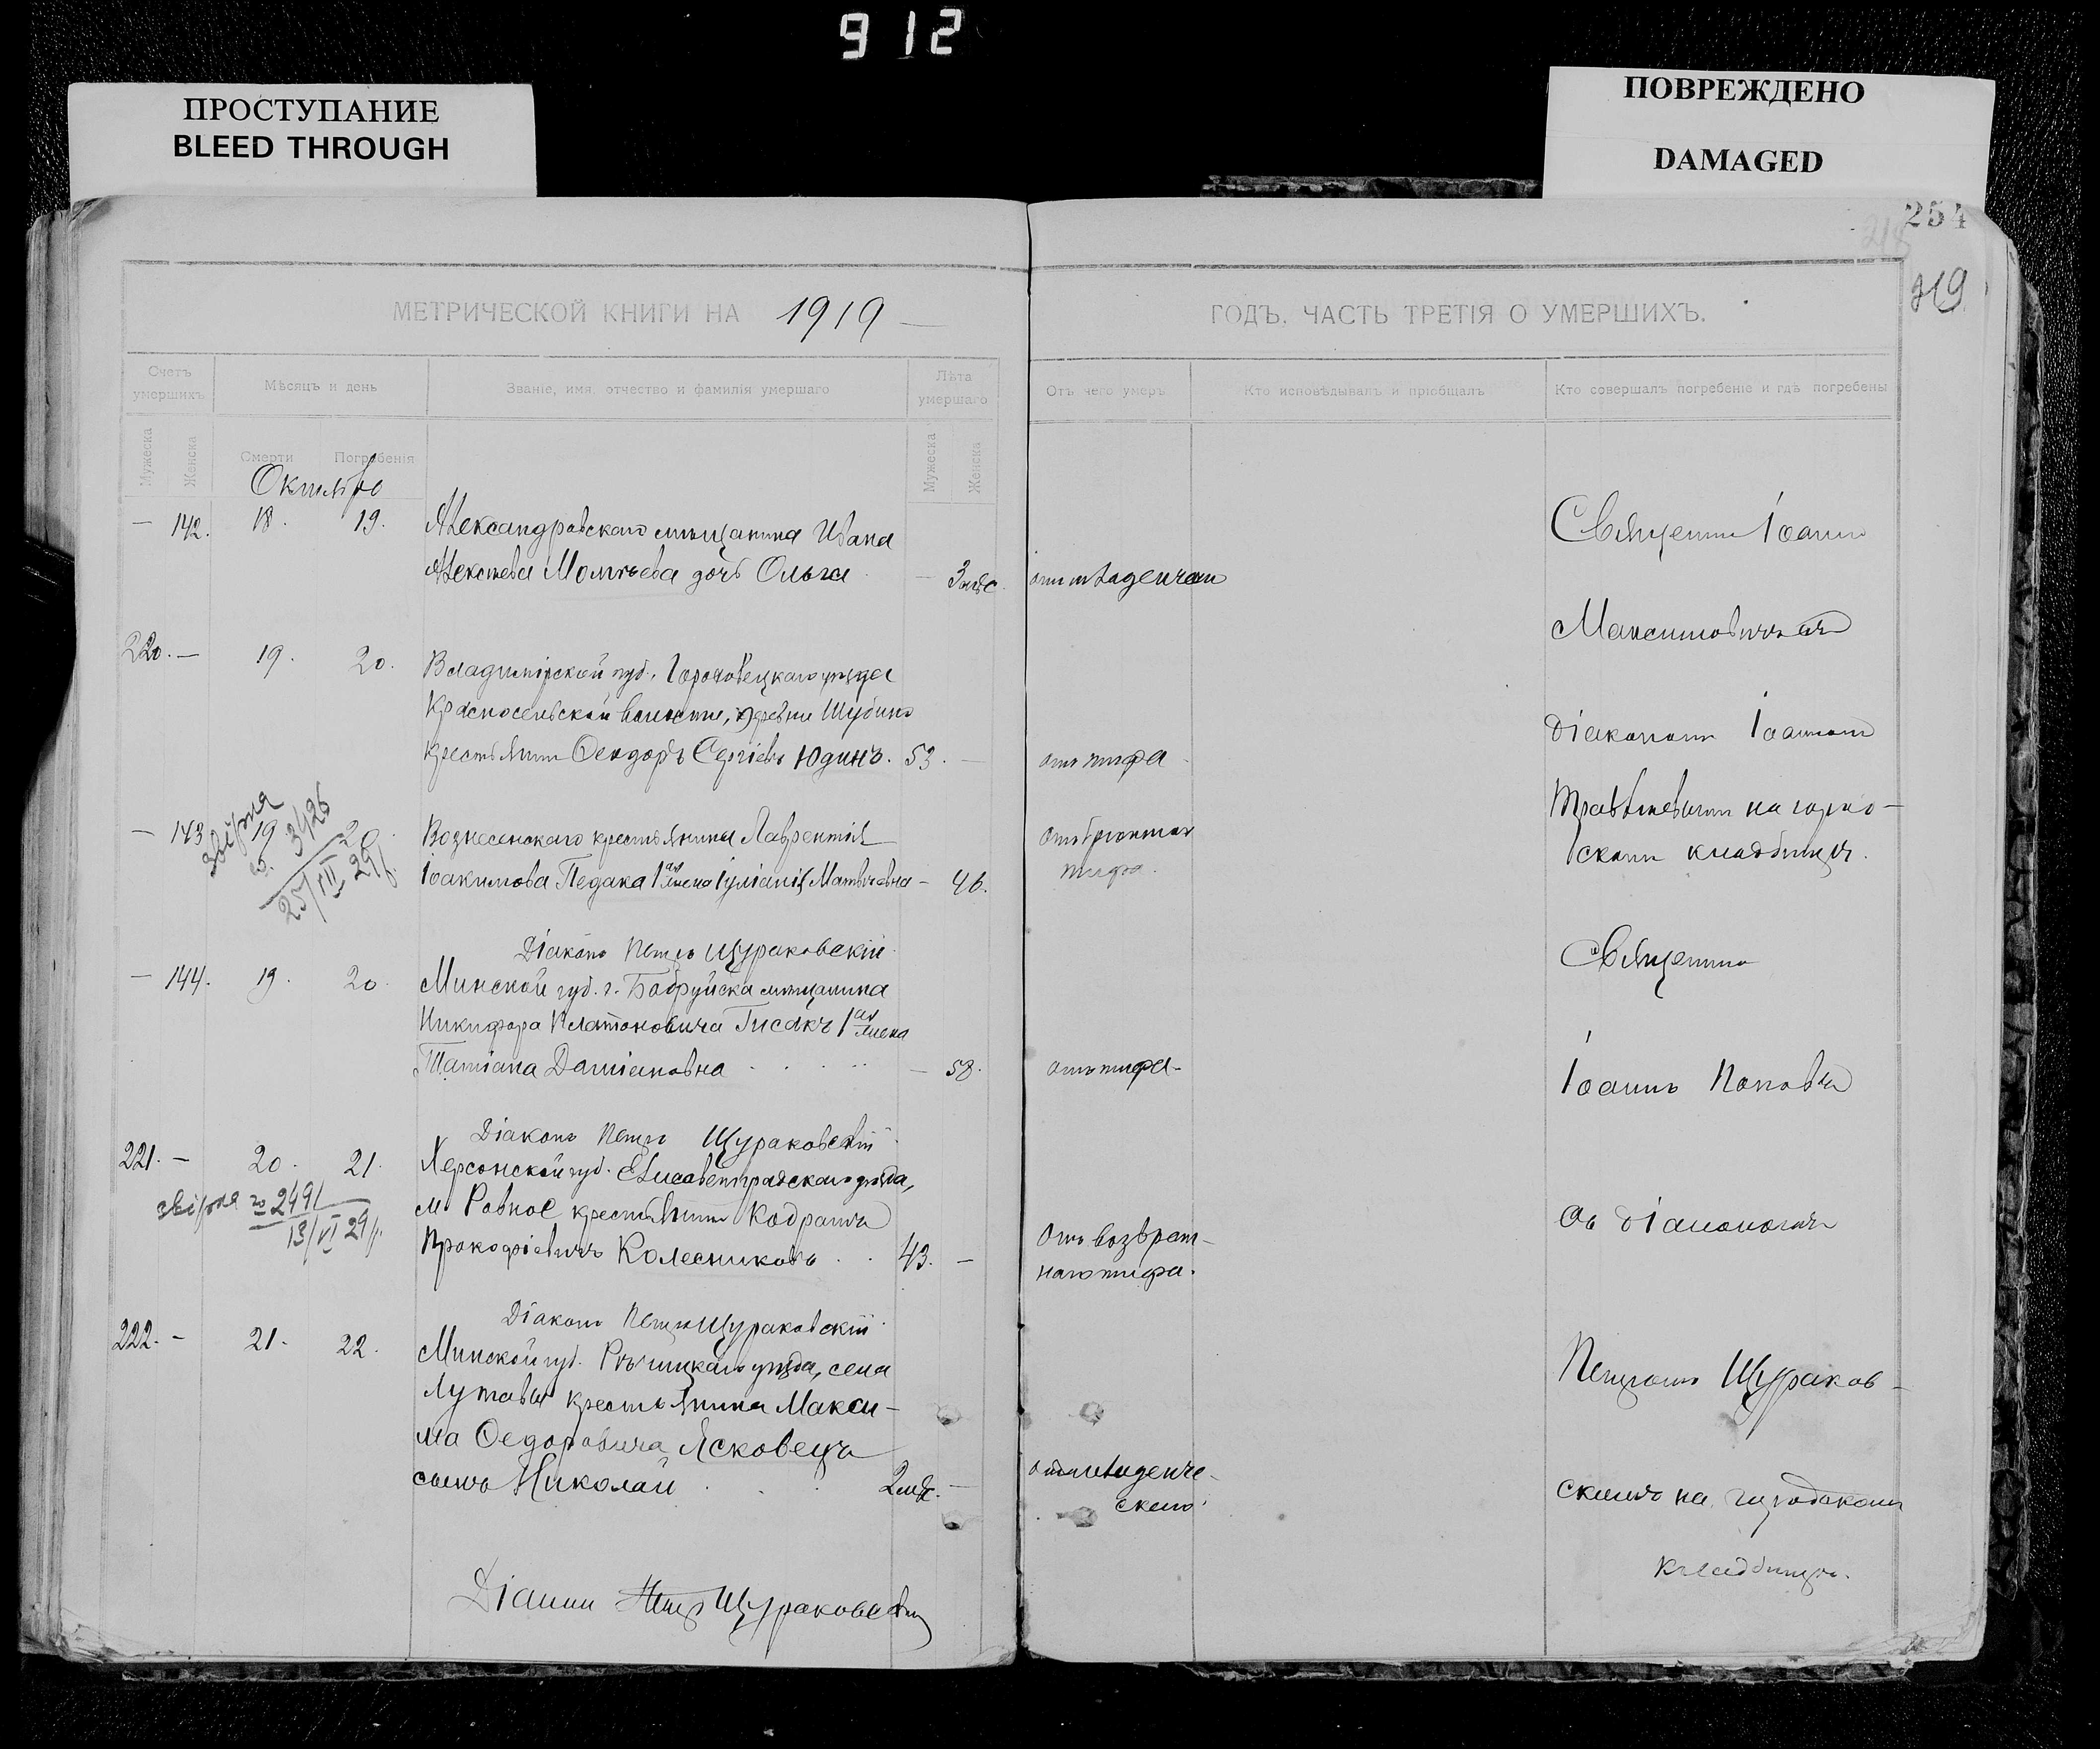 912
ПРОСТУПАНИЕ
BLEED THROUGH
ПОВРЕЖДЕНО
DAMAGED
254
219
МЕТРИЧЕСКОЙ КНИГИ НА 1919
ГОДЪ. ЧАСТЬ ТРЕТІЯ О УМЕРШИХЪ.
Счетъ умершихъ
Мѣсяцъ и день
Званіе, имя, отчество и фамилія умершаго
Лѣта умершаго
Отъ чего умеръ
Кто исповѣдывалъ и пріобщалъ
Кто совершалъ погребеніе и гдѣ погребены
Мужеска
Женска
Смерти
Погребенія
Мужеска
Женска
Октябрь
— 142. 18. 19. Александровскаго мѣщанина Ивана
Алексѣева дочь Ольга — 3 мѣс.
220. — 19. 20. Владимірской губ., Гороховецкаго уѣзда
Красносельской волости, деревни Шубино
крестьянинъ Ѳеодоръ Сергіевъ Юдинъ. 53. — отъ тифа
— 143 19 20. Вознесенскаго крестьянина Лаврентія
Іоакимова Педака 1ая жена Іуліанія Матвѣевна — 46. тифа.
звірена
3426
25/III 29р.
Діаконъ Петръ Щураковскій
— 144. 19. 20. Минской губ. г. Бобруйска мѣщанина
Никифора Платоновича Гисакъ 1ая жена
Татіана Даміановна — 58. отъ тифа.
Діаконъ Петръ Щураковскій
221. — 20. 21. Херсонской губ. Елисаветградскаго уѣзда,
м. Ровное крестьянинъ Кодратъ
Прокофіевичъ Колесниковъ . . 43. — Отъ возврат-
наго тифа.
звірена № 2491
13/VI 29р.
Діаконъ Петръ Щураковскій
222. — 21. 22. Минской губ. Рѣчицкаго уѣзда, села
Лутавы крестьянина Макси-
ма Ѳедоровича Ясковецъ
сынъ Николай 2 мѣс. — отъ младенче-
скаго
Діаконъ Петръ Щураковскій
Священникъ Іоаннъ
Максимовичъ съ
діакономъ Іоанномъ
на город-
скомъ кладбищѣ.
Священникъ
Іоаннъ Поповъ
съ діакономъ
Петромъ Щураков-
скимъ на городскомъ
кладбищѣ.